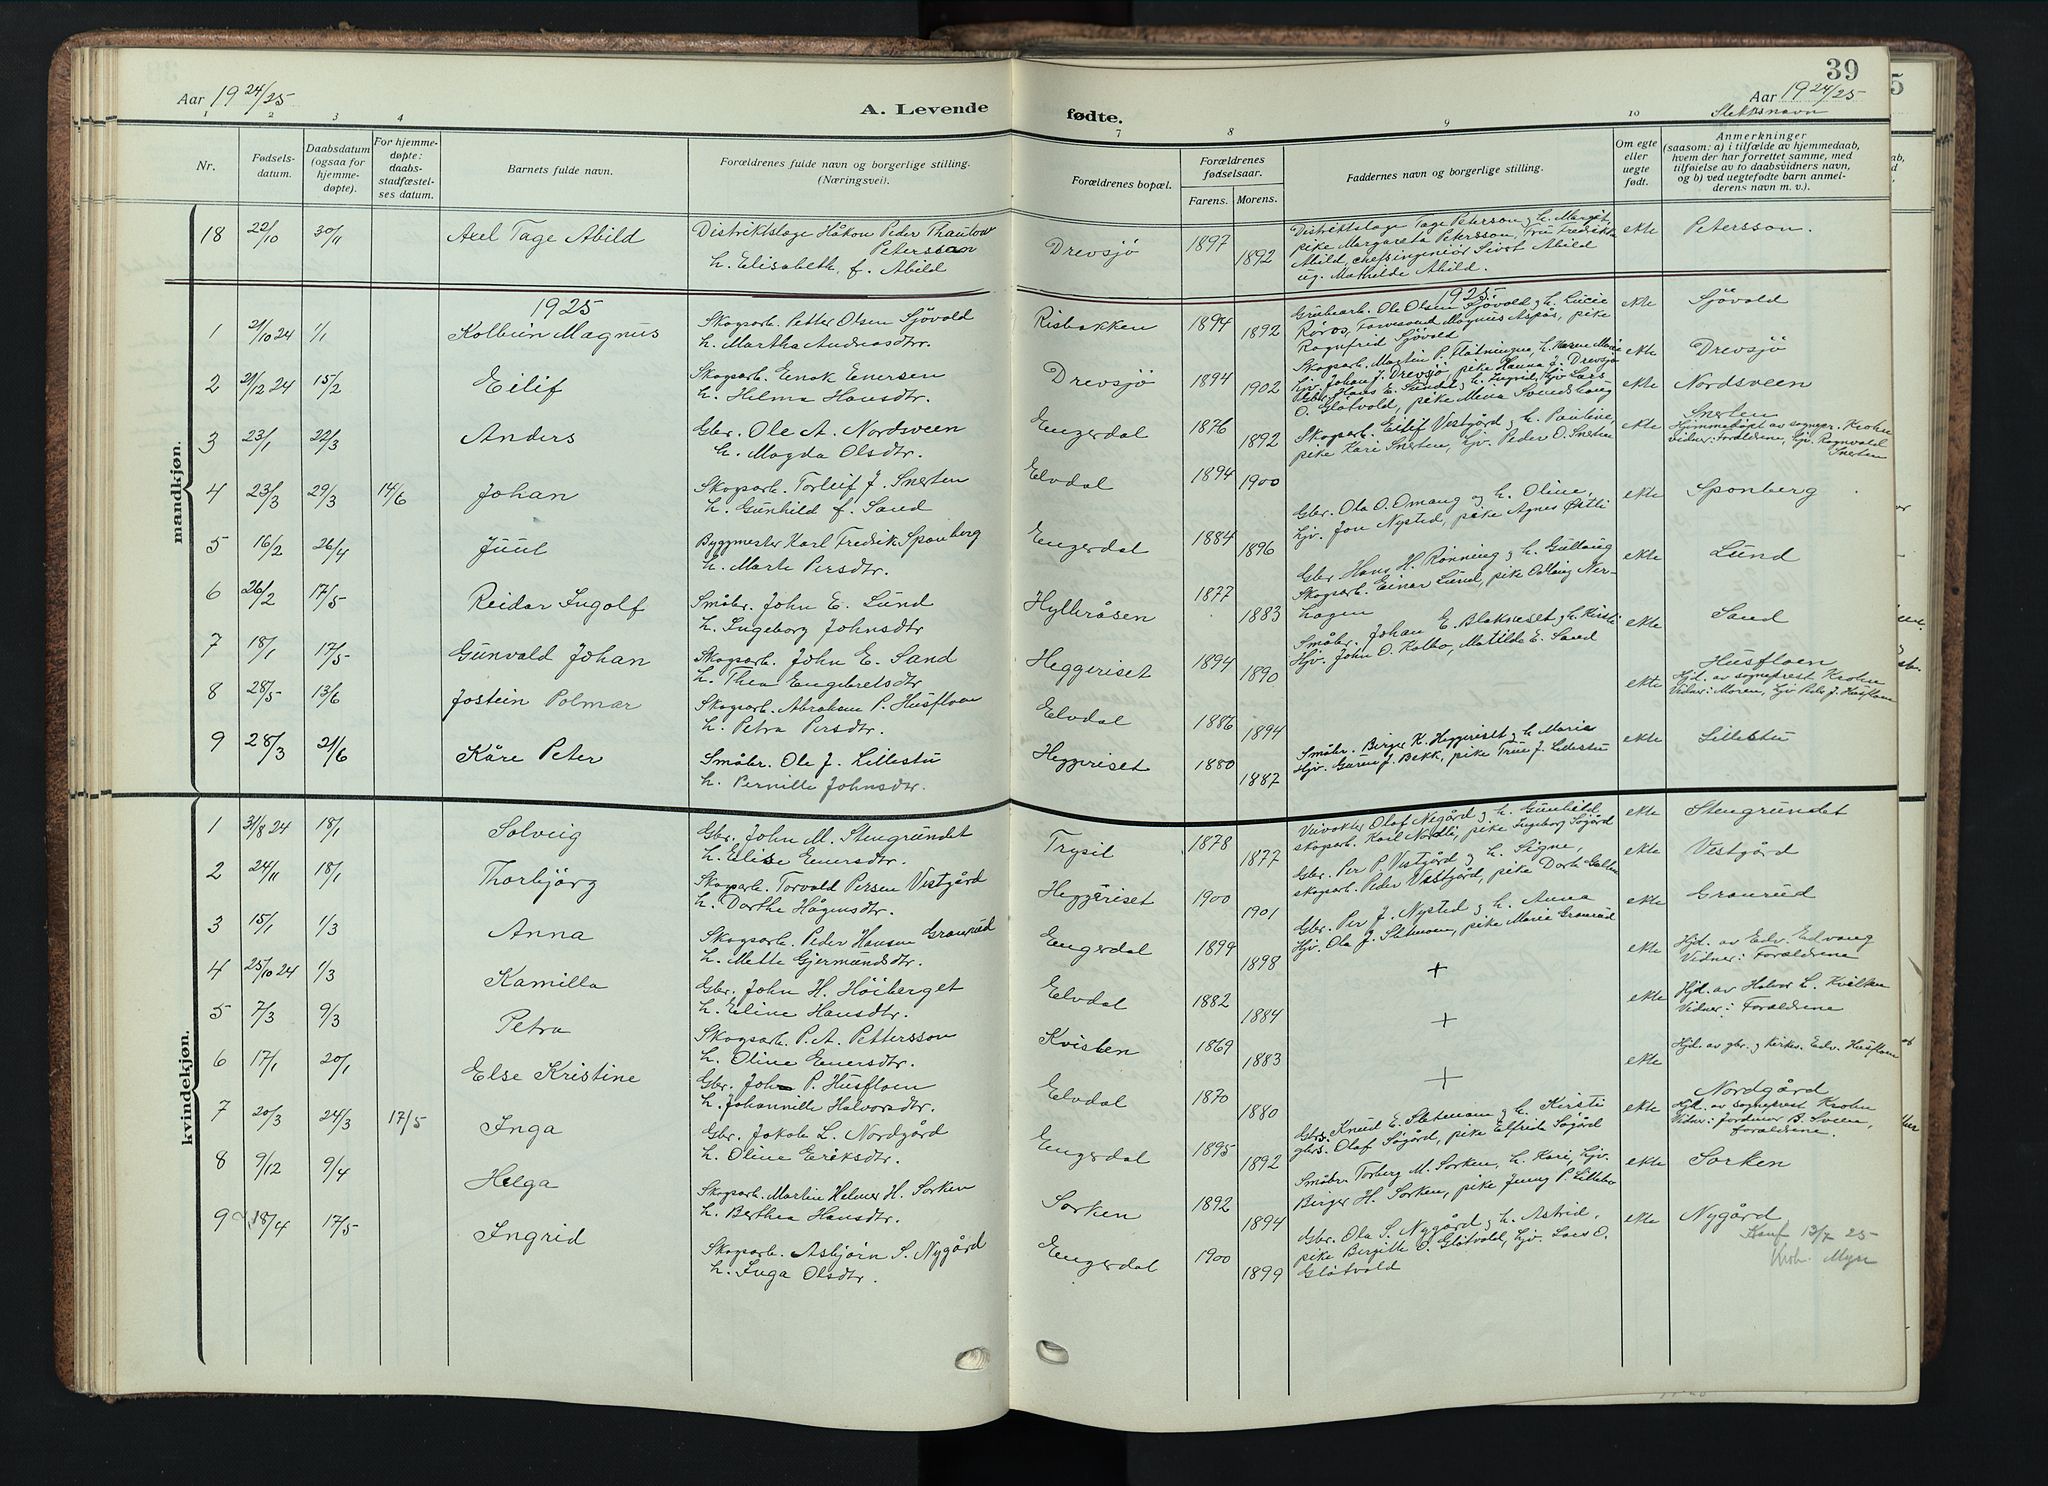 Aar 1924/25
A. Levende
1 2 3 4
Nr.
Fødsels-
datum.
Daabsdatum
(ogsaa for
hjemme-
døpte).
For hjemme-
døpte:
daabs-
stadfæstel-
ses datum.
Barnets fulde navn.
Forældrenes fulde navn og borgerlige stilling.
(Næringsvei).
mandkjøn.
18 22/10 30/11 Axel Tage Abild Distriktslæge Håkon Peder Thaulow
Petersson
h. Elisabeth, f. Abild
1925
1 21/10 24 1/1 Kolbein Magnus Skogsarb. Petter Olsen Sjövold
h. Martha Andreasdtr.
2 21/12 24 15/2 Eilif Skogsarb. Enok Enersen
h. Hilma Hansdtr.
3 23/1 22/3 Anders Gbr. Ole A. Nordsveen
h. Magda Olsdtr.
4 23/3 29/3 14/6 Johan Skogsarb. Torleif J. Snerten
h. Gunhild f. Sand
5 16/2 26/4 Juul Byggmester Karl Fredrik Sponberg
h. Marte Persdtr.
6 26/2 17/5 Reidar Ingolf Småbr. John E. Lund
h. Ingeborg Johnsdtr
7 18/1 17/5 Gunvald Johan Skogsarb. John E. Sand
h. Thea Engebretsdtr
8 28/5 13/6 Jostein Polmar Skogsarb. Abraham P. Husfloen
h. Petra Persdtr.
9 28/3 21/6 Kåre Peter Småbr. Ole J. Lillestu
h. Pernille Johnsdtr.
kvindekjøn.
1 31/8 24 18/1 Solveig Gbr. John M. Stengrundet
h. Elise Enersdtr.
2 24/11 18/1 Thorbjörg Skogsarb. Torvald Persen Vestgård
h. Dorthe Hågensdtr.
3 15/1 1/3 Anna Skogsarb. Peder Hansen Granrud
h. Mette Gjermundsdtr.
4 25/10 24 1/3 Kamilla Gbr. John H. Höiberget
h. Eline Hansdtr.
5 7/3 9/3 Petra Skogsarb. P. A. Pettersson
h. Oline Enersdtr.
6 17/1 20/1 Else Kristine Gbr. John P. Husfloen
h. Johannille Halvorsdtr.
7 20/3 24/3 17/5 Inga Gbr. Jakob L. Nordgård
h. Oline Eriksdtr.
8 9/12 9/4 Helga Skogsarb. Martin Helmer H. Sorken
h. Berthea Hansdtr.
9 18/4 17/5 Ingrid Skogsarb. Asbjørn S. Nygård
h. Inga Olsdtr.
39
Aar 1924/25
fødte.
7 8 9 10 Slektsnavn
Forældrenes bopæl.
Forældrenes
fødselsaar.
Farens. Morens.
Faddernes navn og borgerlige stilling.
Om egte
eller
uegte
født.
Anmerkninger
(saasom: a) i tilfælde av hjemmedaab,
hvem der har forrettet samme, med
tilføielse av to daabsvidners navn,
og b) ved uegtefødte barn anmel-
derens navn m. v.).
Drevsjö 1897 1892 Distriktslæge Tage Peterson og h. Margit,
pike Margareta Petersson, Fru Fredrikke
Abild, chefsingeniör Sivert Abild
ug. Mathilde Abild.
ekte Petersson.
1925.
Risbakken 1894 1892 Grubearb. Ole Olsen Sjövold og h. Lucie
Röros, Magnus Aspås, pike
Ragnfrid Sjövold
ekte Sjövold
Drevsjö 1894 1902 Skogsarb. Martin P. Flötningen, h. Karen Marie
Hjv. Johan J. Drevsjö, pike Hanna J. Drevsjö
ekte Drevsjö
Engerdal 1876 1892 Gbr. Hans E. Sundet og h. Ingrid, Hjv Lars
O. Glötvold, pike Mina Svendshaug
ekte Nordsveen
Elvdal 1894 1900 Skogsarb. Eilif Vestgård og h. Pauline,
pike Kari Snerten, Hjv. Peder O. Snerten
ekte Snerten
Hjemmedöpt av sognepr. Krohn
Vidner: Foreldrene, Hjv. Ragnvald
Snerten
Engerdal 1884 1896 Gbr. Ola O. Omang og h. Oline,
Hjv. Jon Nysted, pike Agnes Östli
ekte Sponberg
Hylleråsen 1877 1883 Gbr Hans H. Rönning og h. Gullaug
Skogsarb. Einar Lund, pike Oddlaug Ner-
hagen
ekte Lund
Heggeriset 1894 1890 Småbr. Johan E. Blakneset og h. Kirsti
Hjv. John O. Kolbo, Matilde E. Sand
ekte Sand
Elvdal 1886 1894 ekte Husfloen
Hjd. av sogneprest Krohn
Vidner: Moren, Hjv Peder J. Husfloen
Heggeriset 1880 1887 Småbr. Birger K. Heggeriset og h. Marie
Hjv. Guren J. Bekk, pike Trine J. Lillestu
ekte Lillestu
Trysil 1878 1877 Veivokter Olaf Negård og h. Gunhild,
skogsarb. Karl Nordli, pike Ingeborg Sögård
ekte Stengrundet
Heggeriset 1900 1901 Gbr. Per P. Vestgård og h. Signe,
skogsarb. Peder Vestgård, pike Dorte Galten
ekte Vestgård
Engerdal 1899 1898 Gbr. Per J. Nysted og h. Anna
Hjv. Ola J. Sletmoen, pike Marie Granrud
ekte Granrud
Elvdal 1882 1884 + ekte Hjd. av Edv. Edvang
Vidner: Foreldrene
Kvisten 1869 1883 + ekte Hjd. av Halvor L. Kvilten
Vidner: Foreldrene
Elvdal 1870 1880 + ekte Hjd. av gbr. og kirkes. Edv. Husfloen
Engerdal 1895 1892 Gbrs. Knud E. Sletmoen og h. Kirsti
gbrs. Olaf Sögård, pike Elfrida Sögård
ekte Nordgård
Hjd. av sogneprest Krohn
Vidner: Jordmor B. Sveen,
foreldrene.
Sorken 1892 1894 Småbr. Torberg M. Sorken, h. Kari, Hjv.
Birger H. Sorken, pike Jenny P. Lillebo
ekte Sorken
Engerdal 1900 1899 Gbr. Ola S. Nygård og h. Astrid,
pike Birgitte O. Glötvold, Hjv. Lars O.
Glötvold
ekte Nygård
Konf 13/7 25